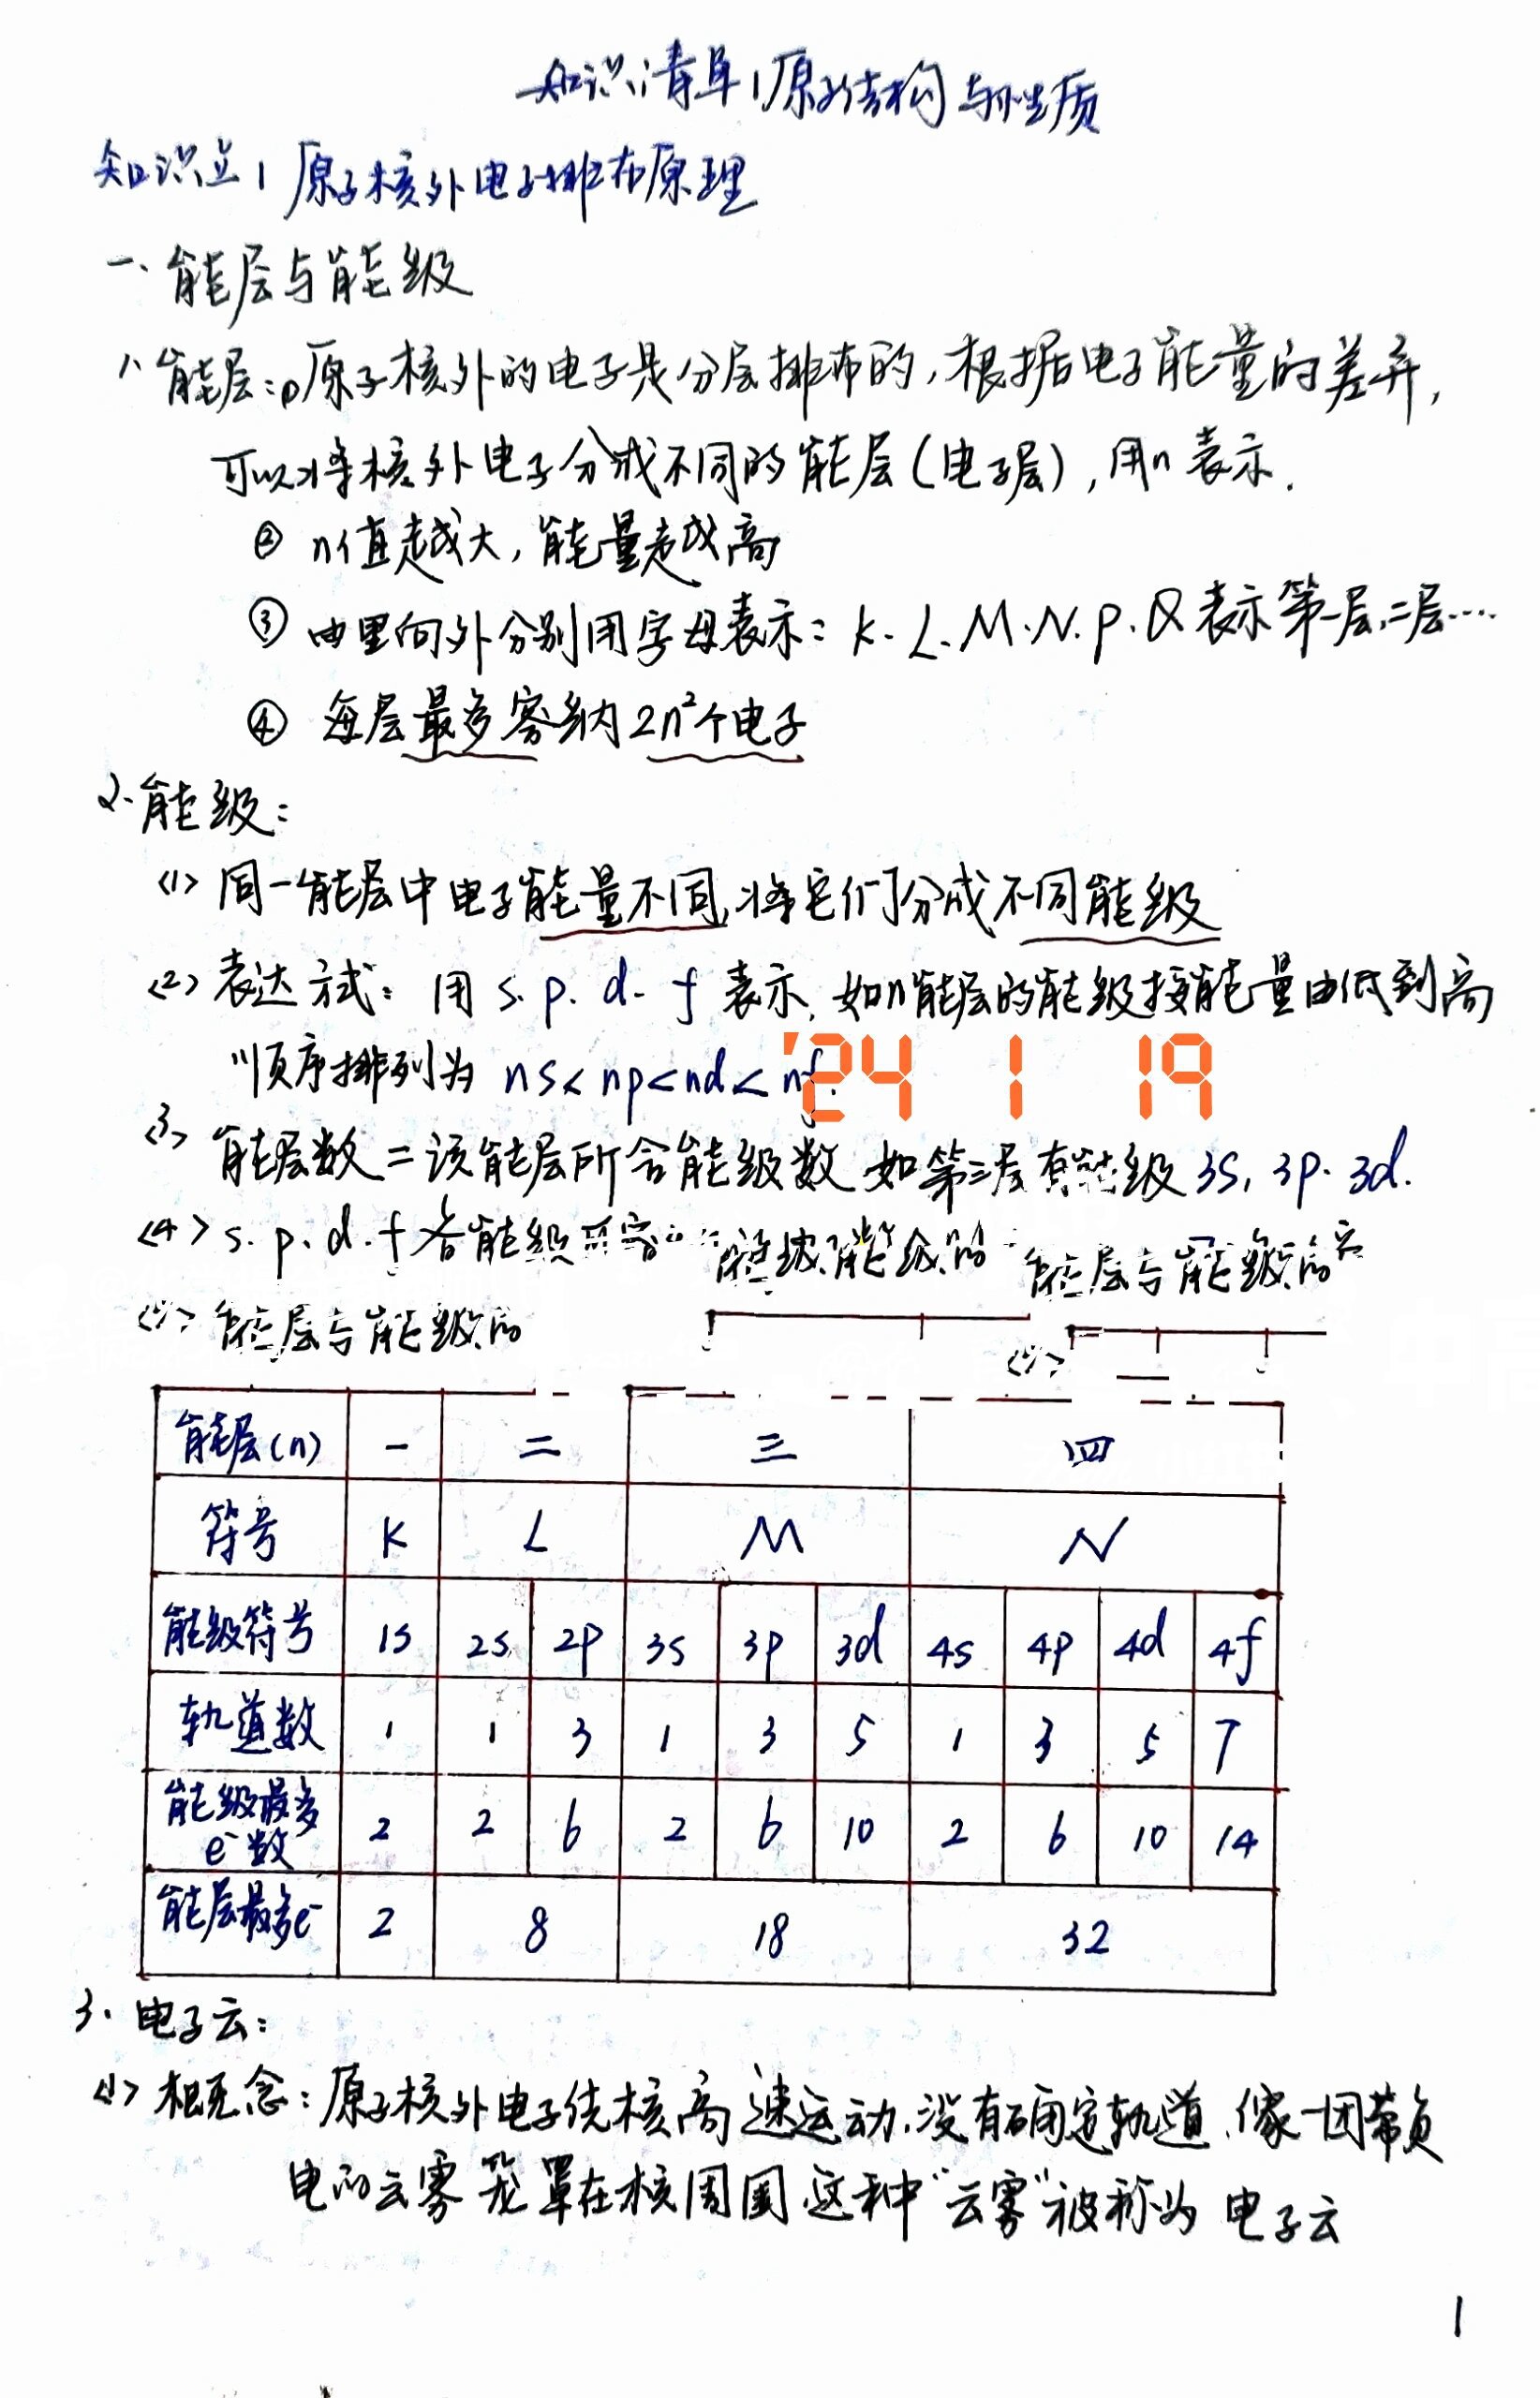 知识清单1原子结构与性质
知识点1 原子核外电子排布原理
一、能层与能级
1、能层:①原子核外的电子是分层排布的,根据电子能量的差异,
可以将核外电子分成不同的能层(电子层),用n表示.
② n值越大,能量越高
③ 由里向外分别用字母表示: K. L. M. N. P. Q 表示第一层,二层…
④ 每层最多容纳2n²个电子
2.能级:
<1> 同一能层中电子能量不同,将它们分成不同能级
<2> 表达方式: 用 s. p. d. f 表示,如n能层的能级按能量由低到高
顺序排列为 ns<np<nd<nf.
'24 1 19
<3> 能层数=该能层所含能级数 如第三层有能级 3s, 3p. 3d.
<4> s. p. d. f 各能级可容 能级的 能层与能级的
能层与能级的
能层(n) 一 二 三 四
符号 K L M N
能级符号 1s 2s 2p 3s 3p 3d 4s 4p 4d 4f
轨道数 1 1 3 1 3 5 1 3 5 7
能级最多 2 2 6 2 6 10 2 6 10 14
e⁻数
能层最多e⁻ 2 8 18 32
3. 电子云:
<1> 概念: 原子核外电子绕核高速运动,没有确定轨道,像一团带负
电的云雾笼罩在核周围,这种“云雾”被称为 电子云
1